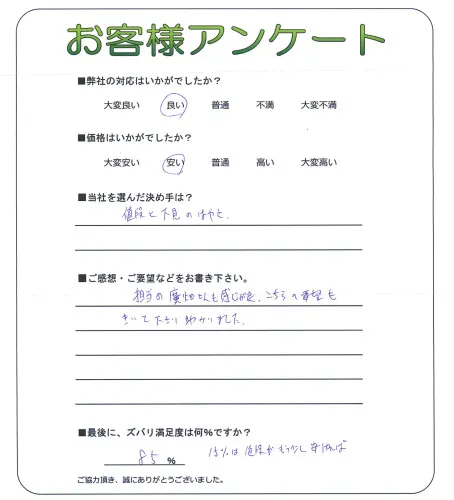 お客様アンケート
■弊社の対応はいかがでしたか？
大変良い 良い 普通 不満 大変不満
■価格はいかがでしたか？
大変安い 安い 普通 高い 大変高い
■当社を選んだ決め手は？
値段と下見のはやさ.
■ご感想・ご要望などをお書き下さい。
担当の さんも感じが良く、こちらの希望も
きいて下さり助かりました.
■最後に、ズバリ満足度は何%ですか？
85 % 15%は値段がもう少し安ければ
ご協力頂き、誠にありがとうございました。